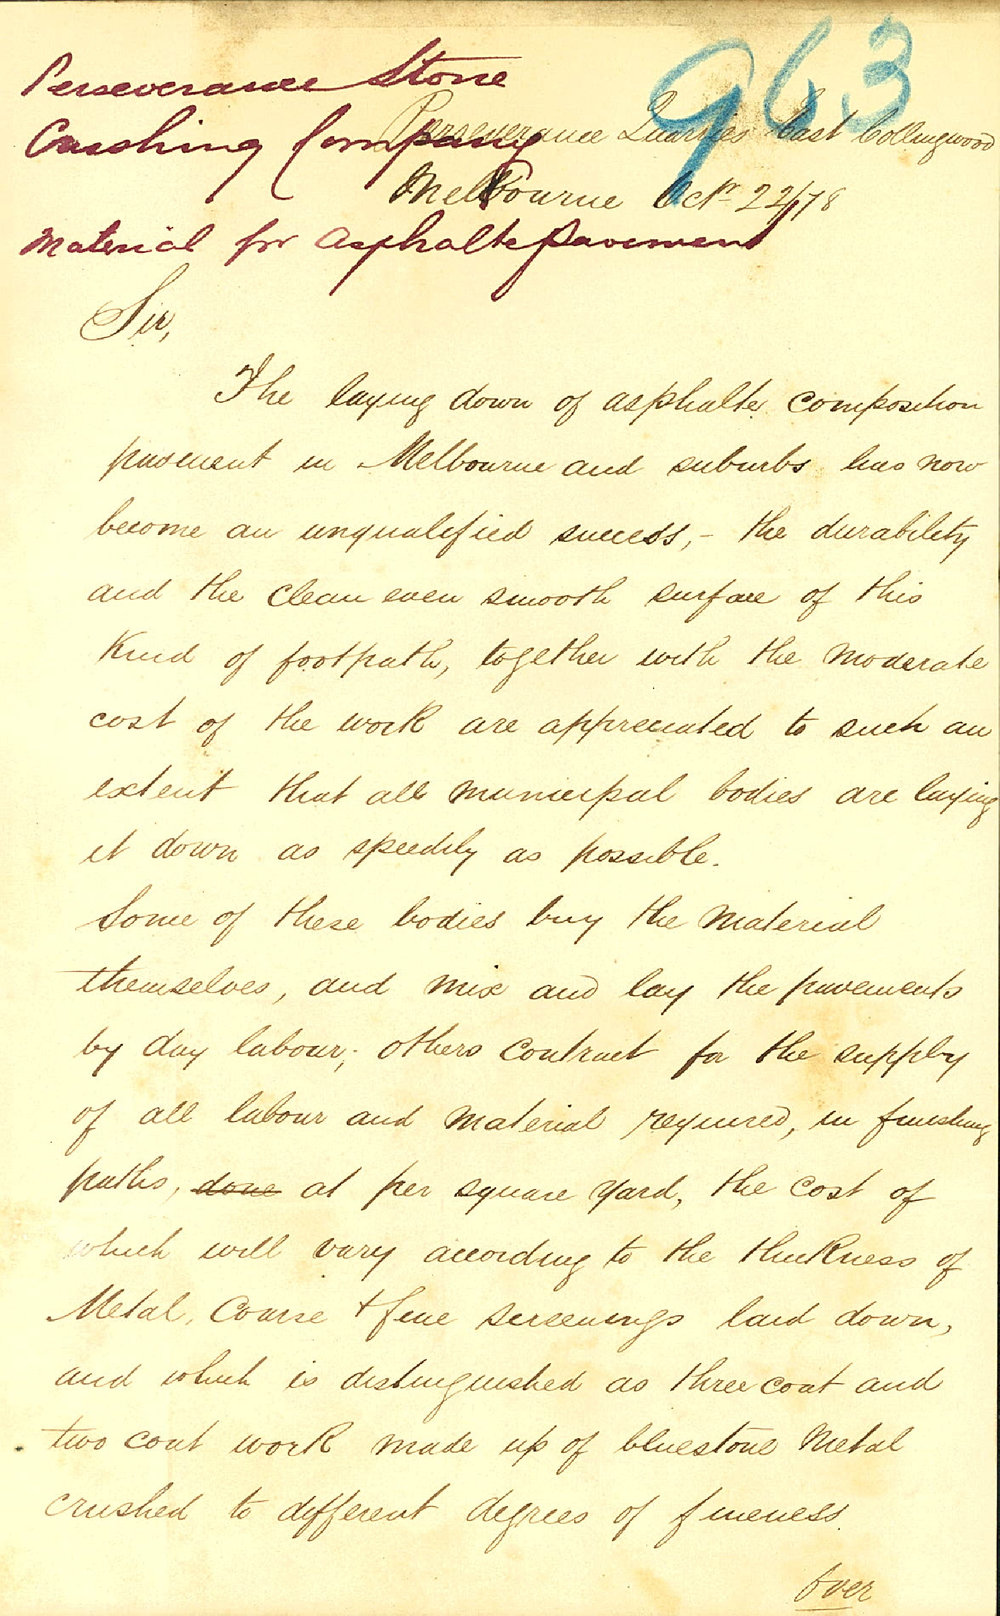 963
Perseverance Stone
Crushing Company
Perseverance Quarries East Collingwood
Melbourne Octr 22/78
Material for Asphalte Pavement
Sir,
The laying down of asphalte composition
pavement in Melbourne and suburbs has now
become an unqualified success, - the durability
and the clean even smooth surface of this
kind of footpath, together with the moderate
cost of the work are appreciated to such an
extent that all municipal bodies are laying
it down as speedily as possible.
Some of these bodies buy the material
themselves, and mix and lay the pavements
by day labour; others contract for the supply
of all labour and material required, in finishing
paths, done at per square yard, the cost of
which will vary according to the thickness of
Metal, Coarse + fine screenings laid down,
and which is distinguished as three coat and
two coat work made up of bluestone Metal
crushed to different degrees of fineness.
Over